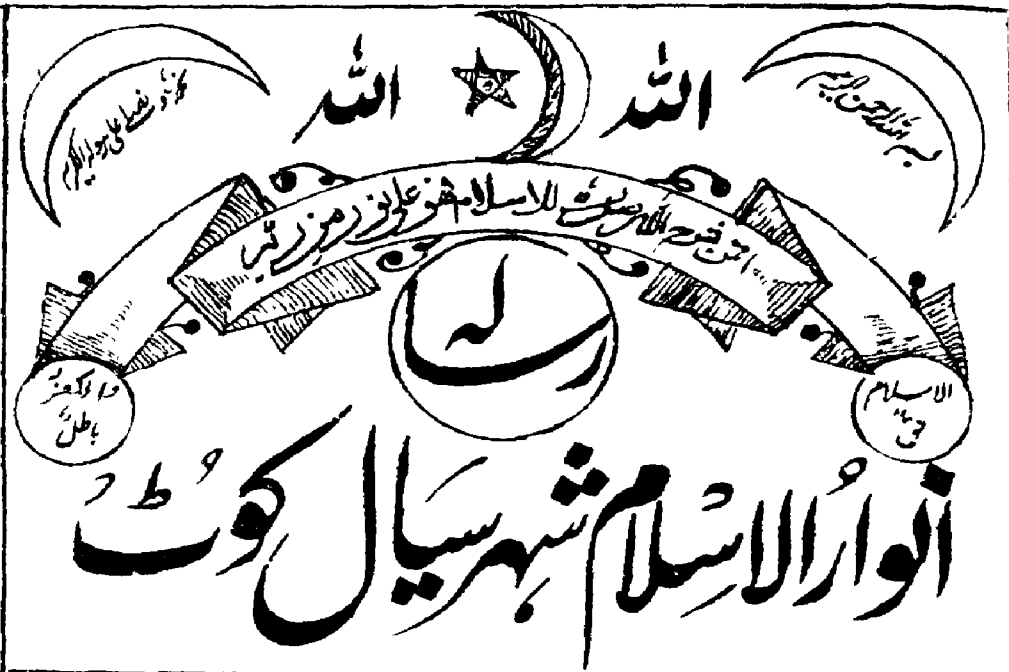 بسم الله الرحمن الرحيم
الله
الله
نحمده ونصلي على رسوله الكريم
افمن شرح الله صدره للاسلام فهو على نور من ربه
رسالہ
الاسلام
حق
والكفر
باطل
انوارُ الاسْلام شہر سیال کوٹ